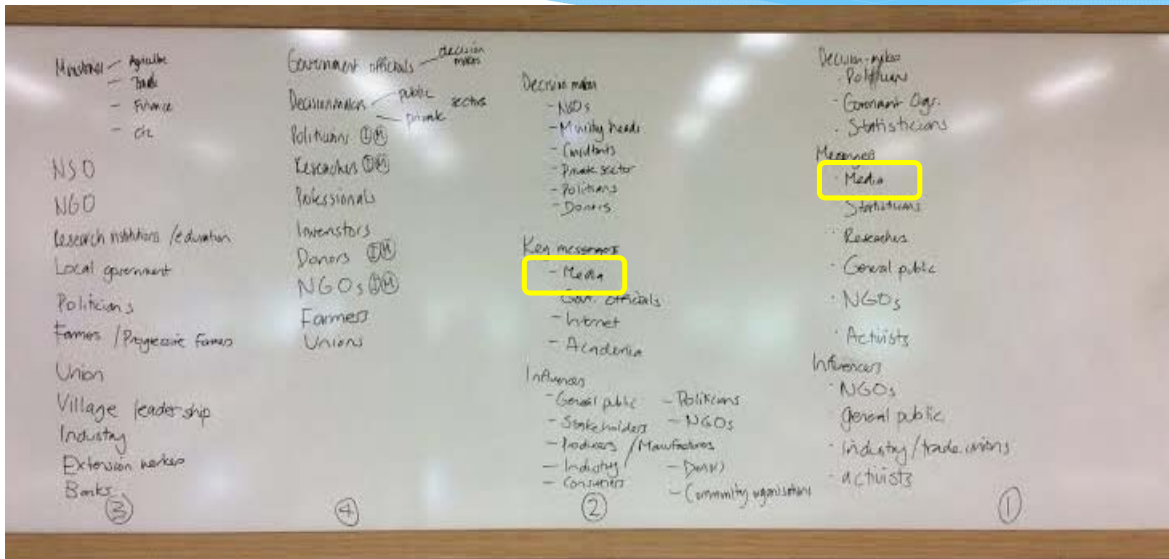 Ministries - Agriculture
- Trade
- Finance
- etc
NSO
NGO
Research institutions /education
Local government
Politicians
Farmers /Progressive farmers
Union
Village leadership
Industry
Extension workers
Banks
③
Government officials - decision makers
Decision makers - public sectors
- private
Politicians Ⓘ Ⓜ
Researchers Ⓘ Ⓜ
Professionals
Investors
Donors Ⓘ Ⓜ
NGOs Ⓘ Ⓜ
Farmers
Unions
④
Decision makers
- NGOs
- Ministry heads
- Consultants
- Private sector
- Politicians
- Donors
Key messengers
- Media
- Gov. officials
- Internet
- Academia
Influencers
- General public - Politicians
- Stakeholders - NGOs
- Producers / Manufacturers
- Industry - Donors
- Consumers - Community organisations
②
Decision-makers
· Politicians
· Government Orgs.
· Statisticians
Messengers
· Media
· Statisticians
· Researchers
· General public
· NGOs
· Activists
Influencers
· NGOs
· general public
· industry/trade unions
· activists
①